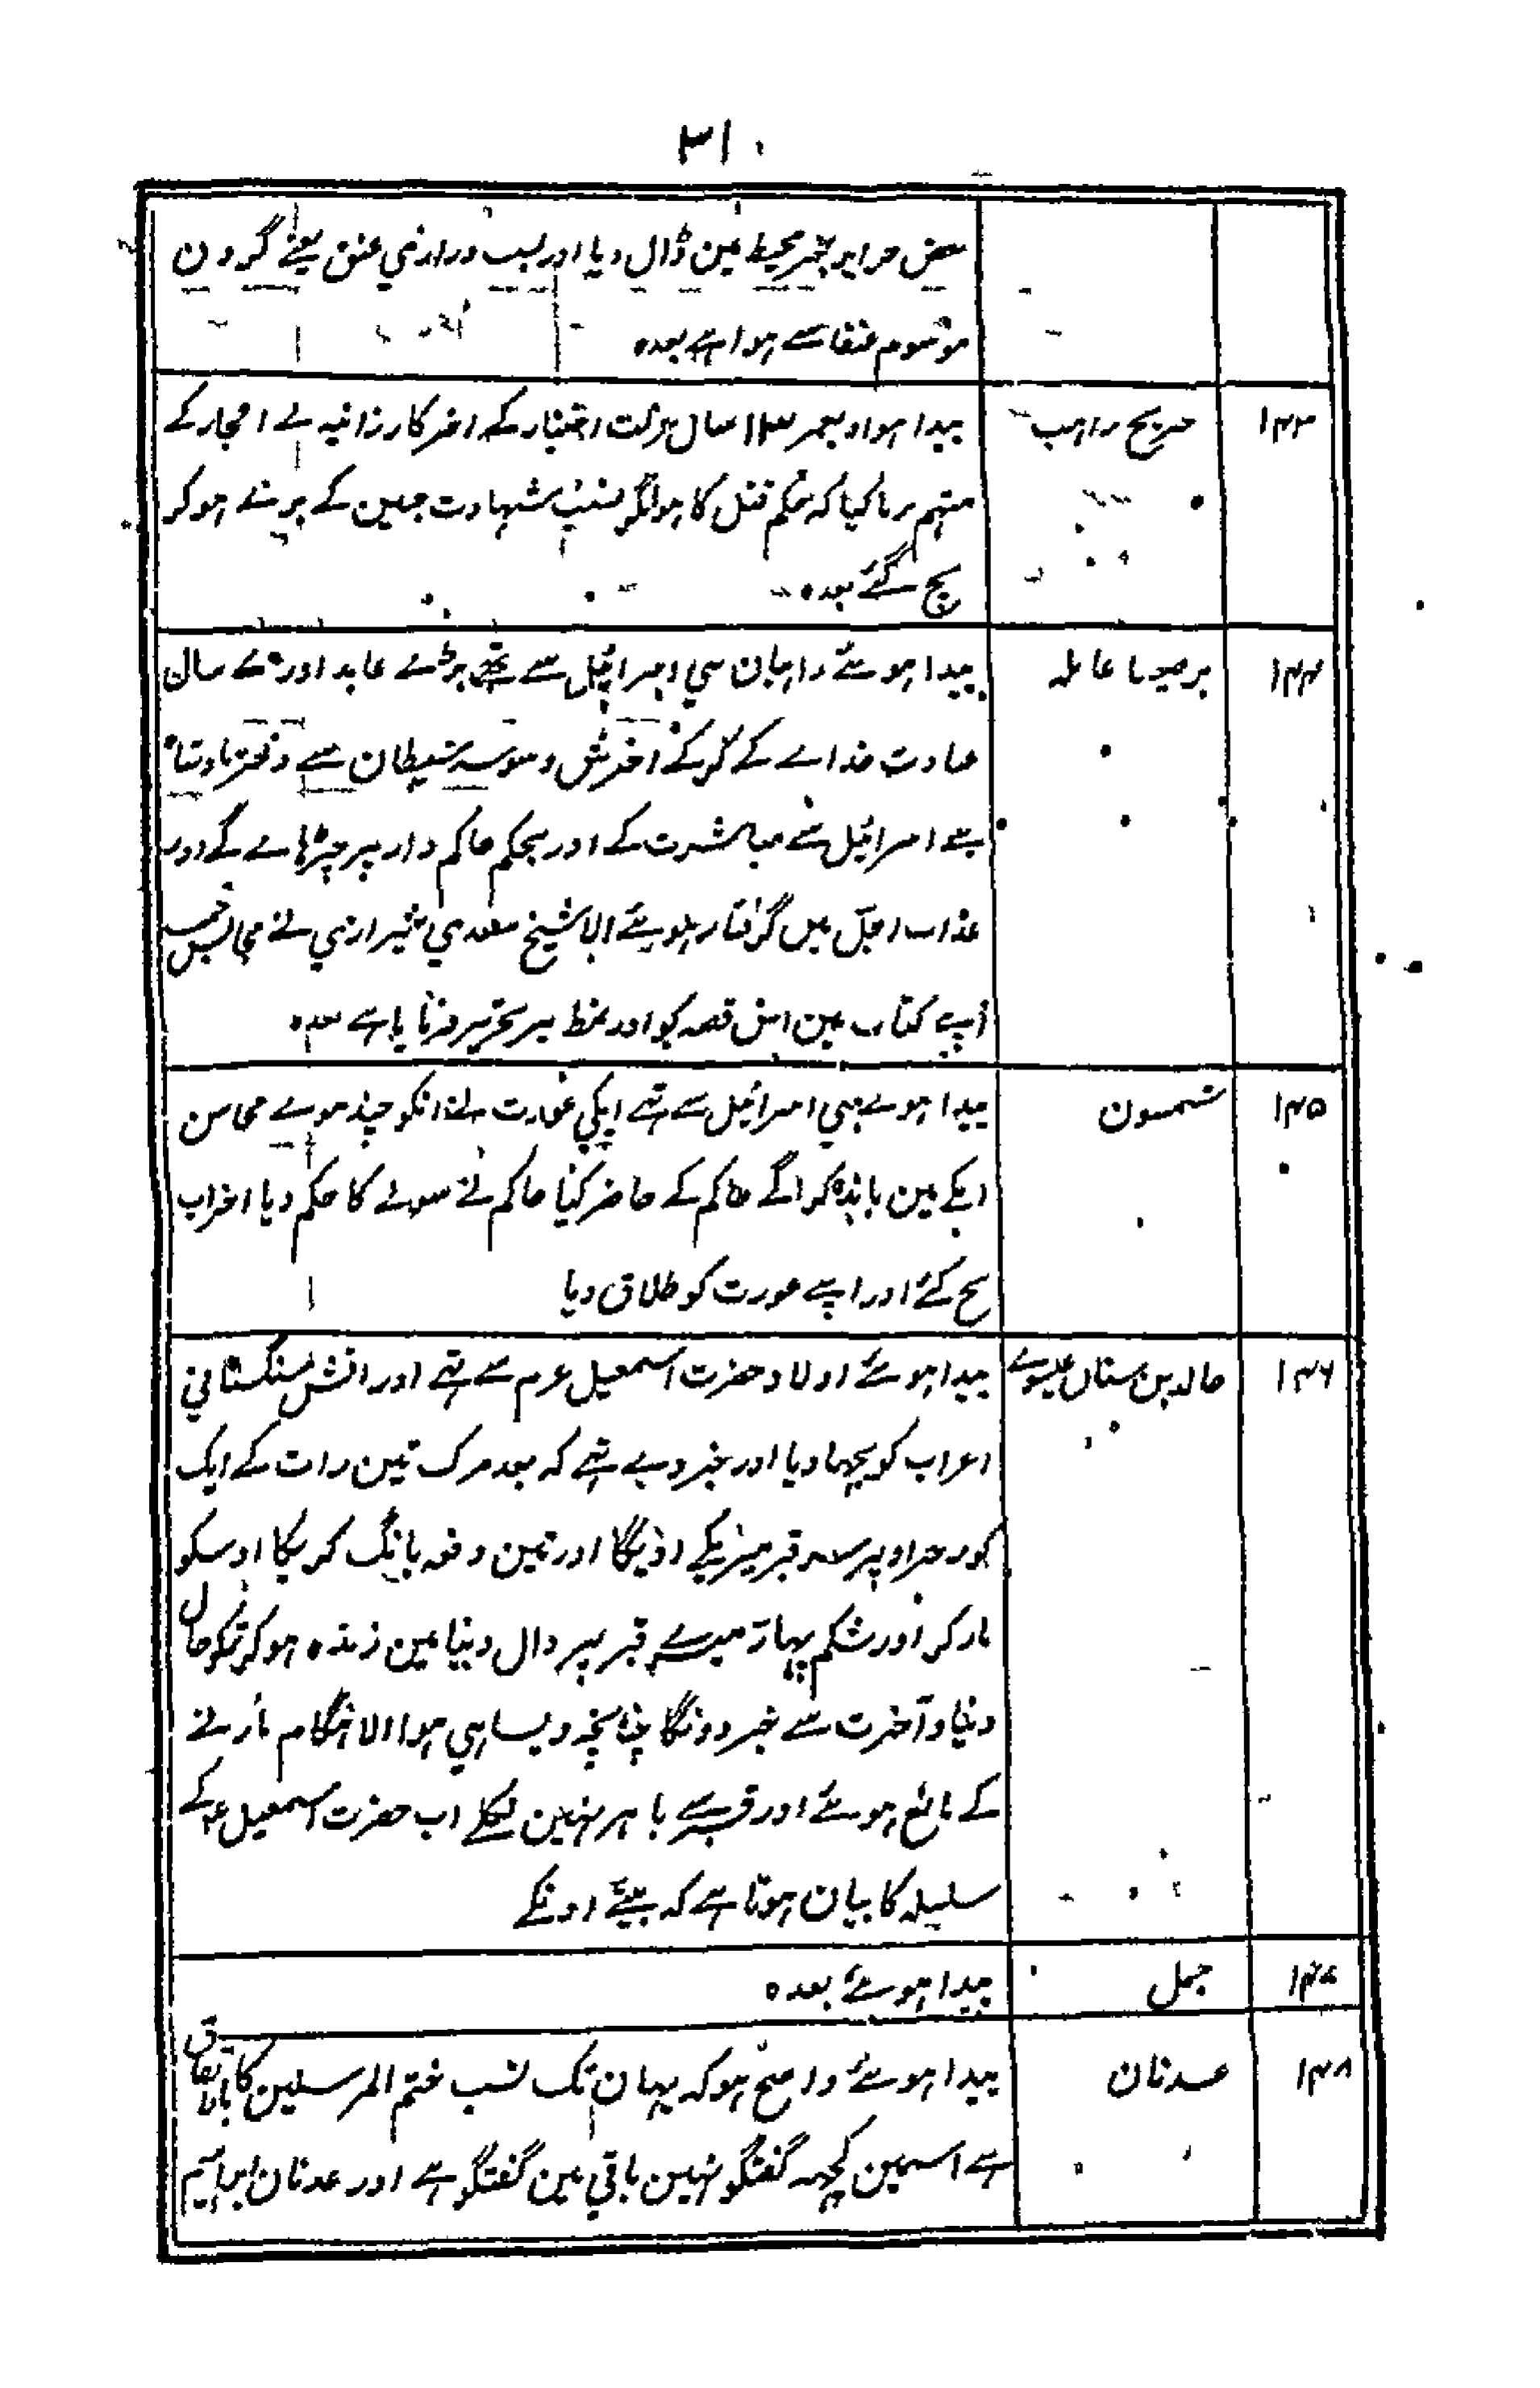 ۳۱۰
بعض جزایر بحر محیط مین ڈال دیا اور بسبب درازي عنق یعنے گردن
موسوم عنقا سے ہوا ہے بعدہ
۱۴۳ جریح راہب پیدا ہوا و بعمر ۱۳ سال عزلت اختیار کے اخر کار زانیہ نے
متہم زنا کیا کہ حکم قتل کا ہوا مگر بسبب شہادت جنین کے بری ہوکر
بچ گئے بعدہ
۱۴۴ برصیصا عابد پیدا ہوئے راہبان بني اسرائیل سے تھے بڑے عابد اور ۷۰ سال
عبادت خداے کے کرکے اخرش وسوسہ شیطان سے دختر بادشاہ
بنے اسرائیل سے مباشرت کے اور بحکم حاکم دار پر چڑھاے گے اور
عذاب میں گرفتار ہوئے الا شیخ سعدي شیرازي نے مجالس خمسہ
اپنے کتاب مین اس قصہ کو اور نمط پر تحریر فرمایا ہے بعدہ
۱۴۵ شمسون پیدا ہوے بني اسرائیل سے تھے ایکي عورت نے انکو چند موے محاسن
انکے مین باندہ کر اگے حاکم کے حاضر کیا حاکم نے سولے کا حکم دیا اخراب
بچ گئے اور اپنے عورت کو طلاق دیا
۱۴۶ خالد بن سنان عبسے پیدا ہوئے اولاد حضرت اسمعیل عرم سے تھے اور اتش سنگستاني
اعراب کو بجہا دیا اور خبر دیے تھے کہ بعد مرگ تین رات کے ایک
گور خر اوپر سر قبر میریکے اویگا اور تین دفعہ بانگ کریگا اوسکو
مار کر اور شکم پہاڑ میرے قبر پر ڈال دینا مین زندہ ہوکر تمکو حال
دنیا و آخرت سے خبر دونگا چنانچہ ویسا ہي ہوا الا ہنگام مارنے
کے مانع ہوئے اور قبر سے باہر نہین نکلے اب حضرت اسمعیل ع کے
سلسلہ کا بیان ہوتا ہے کہ بیٹے اونکے
۱۴۷ حمل پیدا ہوئے بعدہ
۱۴۸ عدنان پیدا ہوئے واضح ہو کہ یہان تک نسب ختم المرسلین کا باتفاق
ہے اسمین کچہہ گفتگو نہین باقي مین گفتگو ہے اور عدنان ابراہیم